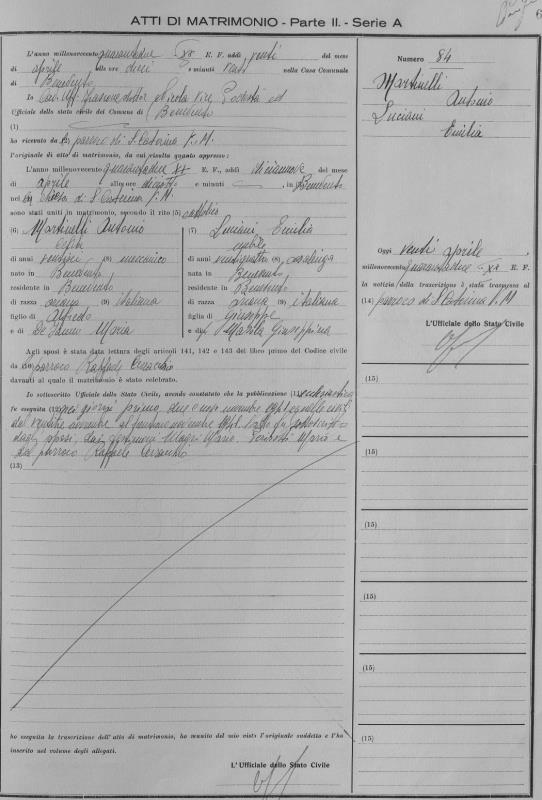 ATTI DI MATRIMONIO - Parte II. - Serie A
6
L'anno millenovecento quarantadue XX E. F. addì venti del mese
di aprile alle ore dieci e minuti venti nella Casa Comunale
di Benevento
Io Nicola Vice Podestà ed
Ufficiale dello stato civile del Comune di Benevento
(1)
ho ricevuto da (2) parroco di S. Caterina V. M.
l'originale di atto di matrimonio, da cui risulta quanto appresso:
L'anno millenovecento quarantadue XX E. F., addì diciannove del mese
di aprile alle ore diciotto e minuti , in Benevento
nel chiesa di S. Caterina V. M.
sono stati uniti in matrimonio, secondo il rito (5) cattolico
(6) Martinelli Antonio
celibe
di anni (8) meccanico
nato in Benevento
residente in Benevento
di razza ariana (9) italiana
figlio di Alfredo
e di De Maria
(7) Luciani Emilia
nubile
di anni ventiquattro (8) casalinga
nata in Benevento
residente in Benevento
di razza ariana (9) italiana
figlia di Giuseppe
e di Giuseppina
Agli sposi è stata data lettura degli articoli 141, 142 e 143 del libro primo del Codice civile
da parroco Raffaele
davanti al quale il matrimonio è stato celebrato.
Io sottoscritto Ufficiale dello Stato Civile, avendo constatato che la pubblicazione (11) ecclesiastica
fu eseguita (12) nei giorni primo, due e nove novembre
dal novembre al novembre
dagli sposi, dai testimoni Mario, Maria e
dal parroco Raffaele
(13)
ho eseguita la trascrizione dell'atto di matrimonio, ho munito del mio visto l'originale suddetto e l'ho
inserito nel volume degli allegati.
L'Ufficiale dello Stato Civile
Numero 84
Martinelli
Antonio
Luciani
Emilia
Oggi venti aprile,
millenovecento quarantadue XX E. F.
la notizia della trascrizione è stata trasmessa al
(14) parroco di S. Caterina V. M.
L'Ufficiale dello Stato Civile
(15)
(15)
(15)
(15)
(15)
(15)